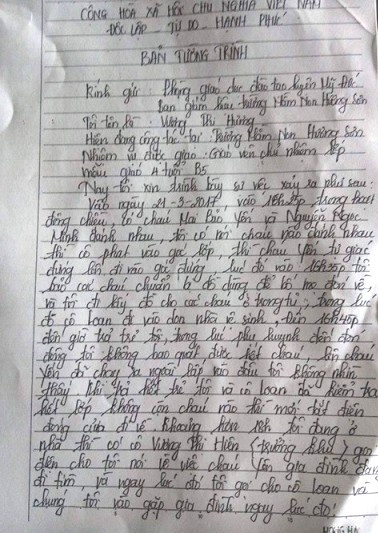 CÔNG HÒA XÃ HỘC CHU NGHĨA VIỆT NAM
ĐỘC LẬP - TỰ DO - HẠNH PHÚC
BẢN TƯỜNG TRÌNH
Kính gửi: Phòng giáo dục đào tạo huyện Mỹ Đức
Ban giám hiệu trường Mầm Non Hương Sơn
Tôi tên là: Vương Thị Hương
Hiện đang công tác tại Trường Mầm Non Hương Sơn
Nhiệm vụ được giao: Giáo viên chủ nhiệm lớp
mẫu giáo 4 tuổi B5
Nay tôi xin trình bày sự việc xảy ra như sau:
Vào ngày 21-3-2017, vào 16h25p trong hoạt
động chiều, có cháu Mai Bảo Yến và Nguyễn Ngọc
Minh đánh nhau, tôi có nói cháu nào đánh nhau
thì cô phạt vào góc lớp, thì cháu Yến tự giác
đứng lên đi vào góc đứng lúc đó vào 16h35p tôi
bảo các cháu chuẩn bị đồ dùng để bố mẹ đón về,
và tôi đi lấy đồ cho các cháu ở trong tủ, trong lúc
đó cô Loan đi vào dọn nhà vệ sinh. Đến 16h45p
đến giờ trả trẻ tôi, trong lúc phụ huynh đến đón
đông tôi không bao quát được hết cháu, lên cháu
Yến đi chạy ra ngoài lớp vào đâu tôi không nhìn
thấy. Khi trả hết trẻ tôi và cô Loan đó kiểm tra
hết lớp không còn cháu nào thì mới tắt điện
đóng cửa đi về. Khoảng hơn 18h tôi đang ở
nhà thì có cô Vương Thị Hiền (trưởng khu) gọi
điện cho tôi nói về việc cháu Yến gia đình đang
đi tìm và ngay lúc đó tôi gọi cho cô Loan và
chúng tôi vào gặp gia đình ngay lúc đó.